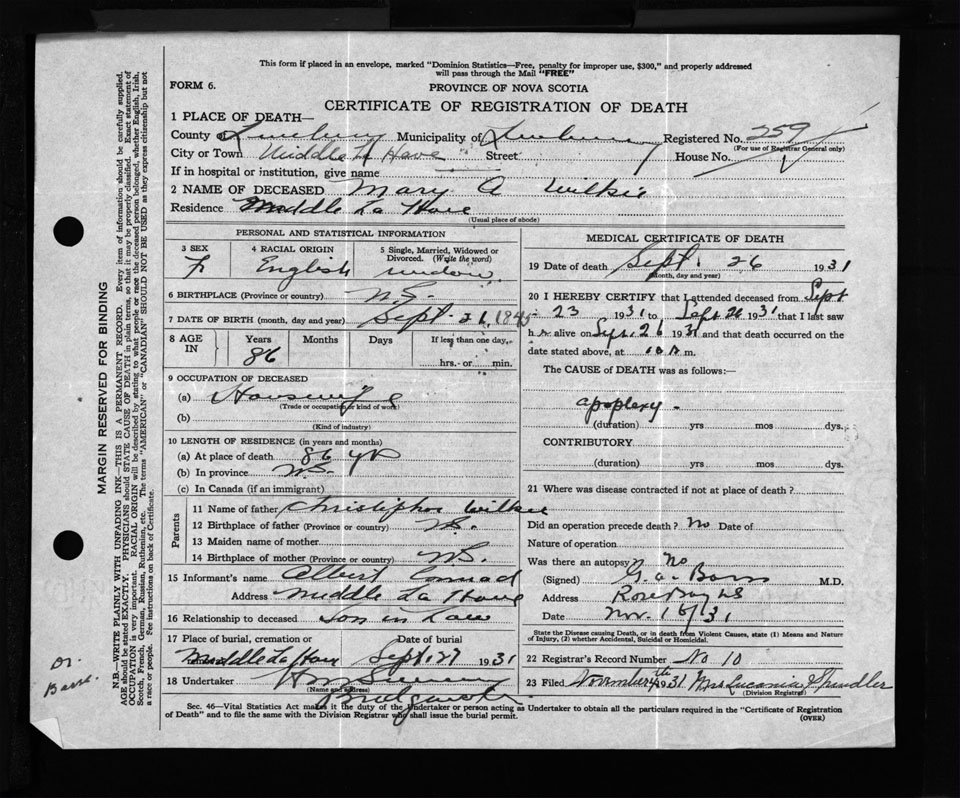 This form if placed in an envelope, marked "Dominion Statistics—Free, penalty for improper use, $300," and properly addressed
will pass through the Mail "FREE"
FORM 6.
PROVINCE OF NOVA SCOTIA
CERTIFICATE OF REGISTRATION OF DEATH
1 PLACE OF DEATH—
County of Lunenburg Municipality of Lunenburg Registered No. 259
(For use of Registrar General only)
City or Town Middle La Have Street House No.
If in hospital or institution, give name
2 NAME OF DECEASED Mary A Wilkie
Residence Middle La Have
(Usual place of abode)
PERSONAL AND STATISTICAL INFORMATION
3 SEX 4 RACIAL ORIGIN 5 Single, Married, Widowed or
Divorced. (Write the word)
F English widow
6 BIRTHPLACE (Province or country) N.S.
7 DATE OF BIRTH (month, day and year) Sept. 26, 1845
8 AGE IN Years Months Days If less than one day,
86 hrs. or min.
9 OCCUPATION OF DECEASED
(a) Housewife
(Trade or occupation or kind of work)
(b)
(Kind of industry)
10 LENGTH OF RESIDENCE (in years and months)
(a) At place of death 86 yrs
(b) In province N.S.
(c) In Canada (if an immigrant)
Parents
11 Name of father Christopher Wilkie
12 Birthplace of father (Province or country) N.S.
13 Maiden name of mother
14 Birthplace of mother (Province or country) N.S.
15 Informant's name Albert Conrad
Address Middle La Have
16 Relationship to deceased Son in Law
17 Place of burial, cremation or Date of burial
Middle La Have Sept. 27 1931
18 Undertaker
(Name and address)
Bridgewater
MEDICAL CERTIFICATE OF DEATH
19 Date of death Sept. 26 1931
(Month, day and year)
20 I HEREBY CERTIFY that I attended deceased from Sept
23 1931 to Sept 26 1931 that I last saw
h alive on Sept. 26 1931 and that death occurred on the
date stated above, at m.
The CAUSE of DEATH was as follows:—
apoplexy -
(duration) yrs mos dys.
CONTRIBUTORY
(duration) yrs mos dys.
21 Where was disease contracted if not at place of death?
Did an operation precede death? No Date of
Nature of operation
Was there an autopsy No
(Signed) M.D.
Address Rose Bay NS
Date Nov. 31
State the Disease causing Death, or in death from Violent Causes, state (1) Means and Nature
of Injury, (2) whether Accidental, Suicidal or Homicidal.
22 Registrar's Record Number No 10
23 Filed November 4th 1931 Mrs Lucania Spindler
(Division Registrar)
Sec. 46—Vital Statistics Act makes it the duty of the Undertaker or person acting as Undertaker to obtain all the particulars required in the "Certificate of Registration
of Death" and to file the same with the Division Registrar who shall issue the burial permit.
(OVER)
MARGIN RESERVED FOR BINDING
N.B.—WRITE PLAINLY WITH UNFADING INK—THIS IS A PERMANENT RECORD. Every item of information should be carefully supplied.
AGE should be stated EXACTLY. PHYSICIANS should STATE CAUSE OF DEATH in plain terms, so that it may be properly classified. Exact statement of
OCCUPATION is very important. RACIAL ORIGIN will be described by stating to what people or race the deceased person belonged, whether English, Irish,
Scotch, French, German, Russian, Ruthenian, etc. The terms "AMERICAN" or "CANADIAN" SHOULD NOT BE USED as they express citizenship but not
a race or people. See instructions on back of Certificate.
Dr.